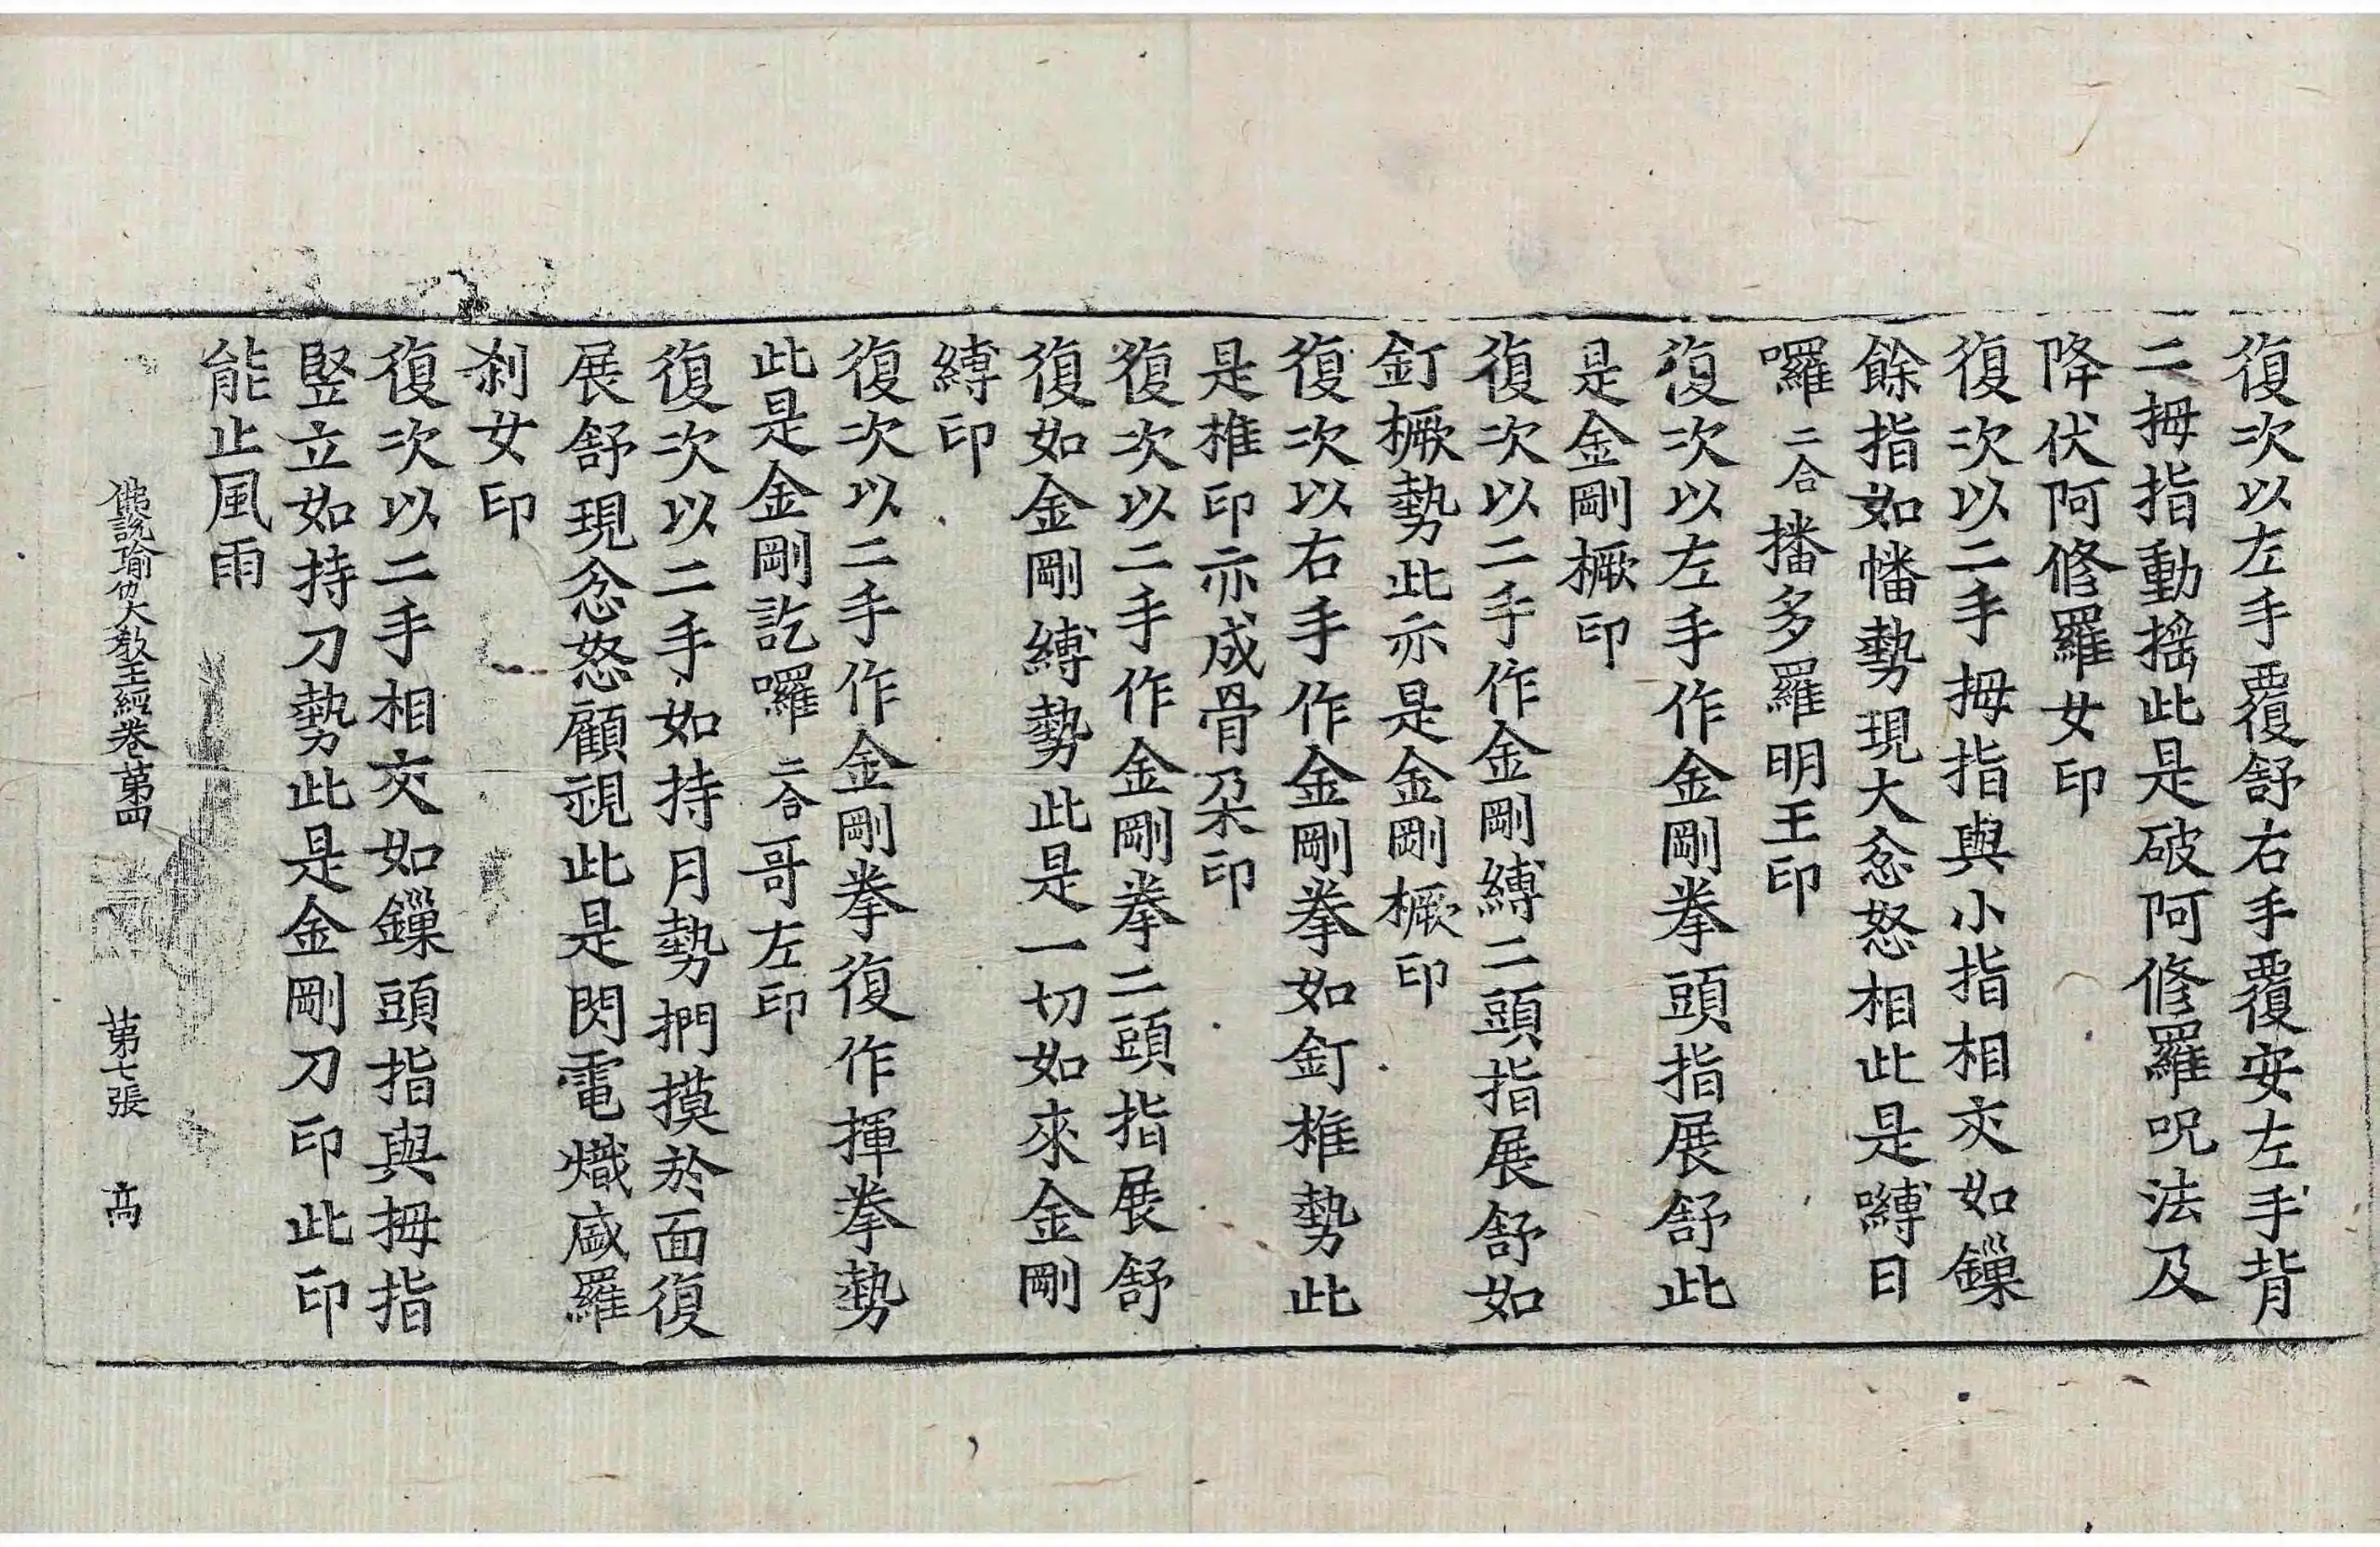 復次以左手覆舒右手覆安左手背
二拇指動揺此是破阿修羅呪法及
降伏阿修羅女印
復次以二手拇指與小指相交如鏁
餘指如幡勢現大忿怒相此是嚩日
囉二合播多羅明王印
復次以左手作金剛拳頭指展舒此
是金剛橛印
復次以二手作金剛縛二頭指展舒如
釘橛勢此亦是金剛橛印
復次以右手作金剛拳如釘椎勢此
是椎印亦成骨朶印
復次以二手作金剛拳二頭指展舒
復如金剛縛勢此是一切如來金剛
縛印
復次以二手作金剛拳復作揮拳勢
此是金剛訖囉二合哥左印
復次以二手如持月勢捫摸於面復
展舒現忿怒顧視此是閃電熾盛羅
刹女印
復次以二手相交如鏁頭指與拇指
竪立如持刀勢此是金剛刀印此印
能止風雨
佛說瑜伽大教王經卷第四 第七張 高